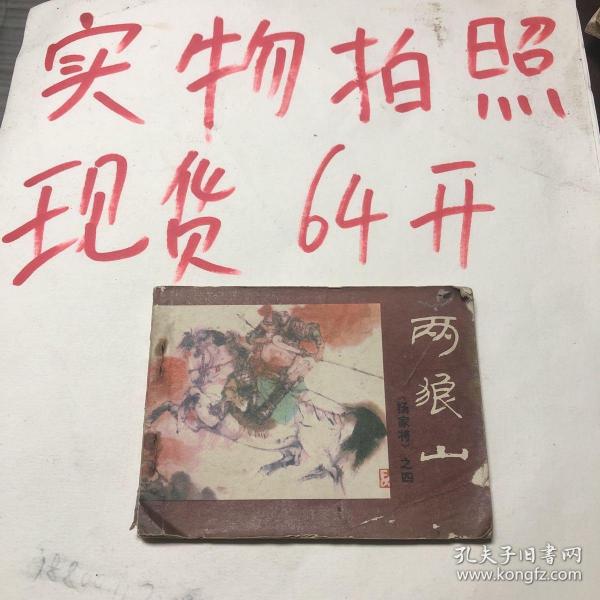 实物拍照
现货 64开
两狼山
《杨家将》之四
孔夫子旧书网
www.kongfz.com